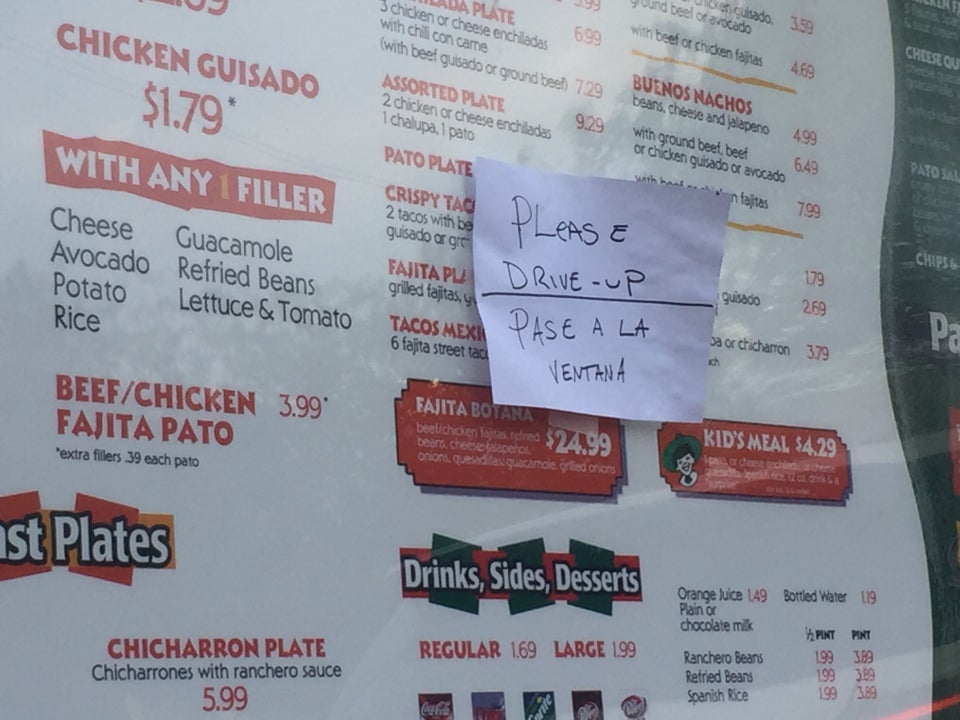 CHICKEN GUISADO
$1.79*
WITH ANY 1 FILLER
Cheese
Avocado
Potato
Rice
Guacamole
Refried Beans
Lettuce & Tomato
BEEF/CHICKEN 3.99*
FAJITA PATO
*extra fillers .39 each pato
Plates
CHICHARRON PLATE
Chicharrones with ranchero sauce
5.99
PLATE
3 chicken or cheese enchiladas 6.99
with chili con carne
(with beef guisado or ground beef) 7.29
ASSORTED PLATE
2 chicken or cheese enchiladas 9.29
1 chalupa, 1 pato
PATO PLATE
CRISPY
2 tacos with
guisado or
FAJITA
grilled fajitas,
TACOS
6 fajita street
PLeASE
DRIVE-UP
PASE A LA
VENTANA
guisado, 3.59
ground beef or avocado
with beef or chicken fajitas 4.69
BUENOS NACHOS
beans, cheese and jalapeno 4.99
with ground beef, beef
or chicken guisado or avocado 6.49
fajitas 7.99
1.79
guisado 2.69
or chicharron 3.79
FAJITA BOTANA
beef/chicken fajitas, refried
beans, cheese, jalapenos,
onions, quesadillas, guacamole, grilled onions
$24.99
KID'S MEAL $4.29
Drinks, Sides, Desserts
REGULAR 1.69 LARGE 1.99
Orange Juice 1.49 Bottled Water 1.19
Plain or
chocolate milk
½ PINT PINT
Ranchero Beans 1.99 3.89
Refried Beans 1.99 3.89
Spanish Rice 1.99 3.89